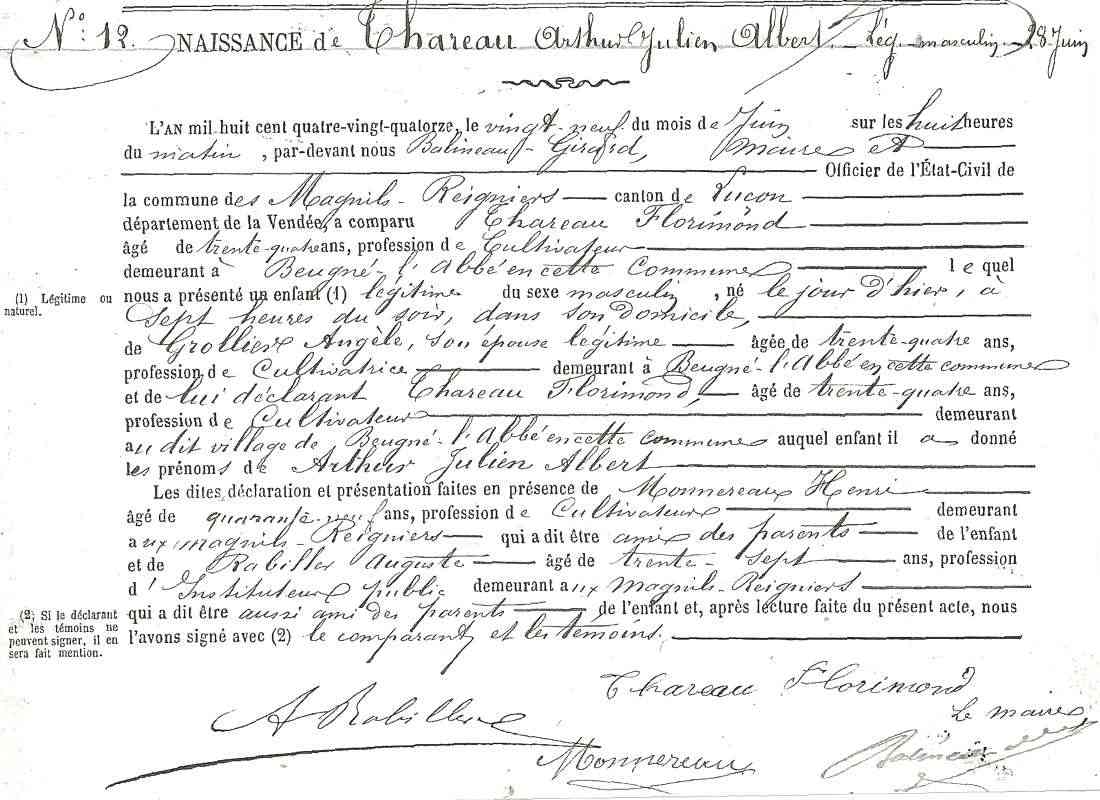 N° 12. NAISSANCE de Thareau Arthur Julien Albert. Lég. masculin. 28 Juin
L'AN mil huit cent quatre-vingt-quatorze, le vingt-neuf du mois de Juin sur les huit heures
du matin, par-devant nous Balineau-Girard, Maire et
Officier de l'État-Civil de
la commune des Magnils-Reigniers canton de Luçon
département de la Vendée, a comparu Thareau Florimond
âgé de trente-quatre ans, profession de Cultivateur
demeurant à Beugné-l'Abbé en cette Commune lequel
(1) Légitime ou
naturel.
nous a présenté un enfant (1) légitime du sexe masculin, né le jour d'hier, à
Sept heures du soir, dans son domicile,
de Grollier Angèle, son épouse légitime âgée de trente-quatre ans,
profession de Cultivatrice demeurant à Beugné-l'Abbé en cette commune
et de lui déclarant Thareau Florimond, âgé de trente-quatre ans,
profession de Cultivateur demeurant
au dit village de Beugné-l'Abbé en cette commune auquel enfant il a donné
les prénoms de Arthur Julien Albert
Les dites déclaration et présentation faites en présence de Monnereau Henri
âgé de quarante-neuf ans, profession de Cultivateur demeurant
aux magnils-Reigniers qui a dit être ami des parents de l'enfant
et de Rabiller Auguste âgé de trente-sept ans, profession
d'Instituteur public demeurant aux Magnils-Reigniers
(2) Si le déclarant
et les témoins ne
peuvent signer, il en
sera fait mention.
qui a dit être aussi ami des parents de l'enfant et, après lecture faite du présent acte, nous
l'avons signé avec (2) le comparant et les témoins.
Thareau Florimond
A Rabiller
Le maire
Monnereau
Balineau